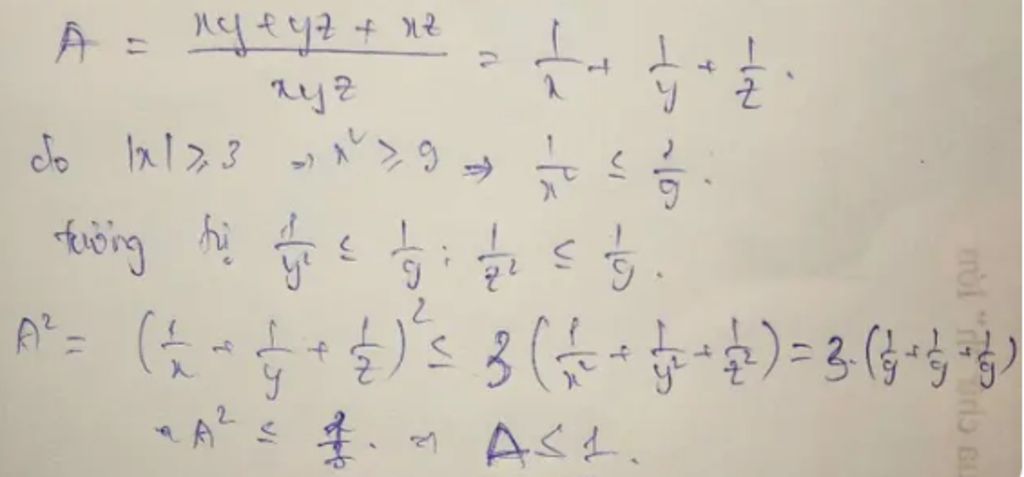 A = (xy + yz + xz)/(xyz) = 1/x + 1/y + 1/z.
do |x| ≥ 3 ⇒ x² ≥ 9 ⇒ 1/x² ≤ 1/9.
tương tự 1/y² ≤ 1/9 ; 1/z² ≤ 1/9.
A² = (1/x + 1/y + 1/z)² ≤ 3(1/x² + 1/y² + 1/z²) = 3.(1/9 + 1/9 + 1/9)
⇒ A² ≤ . ⇒ A ≤ 1.